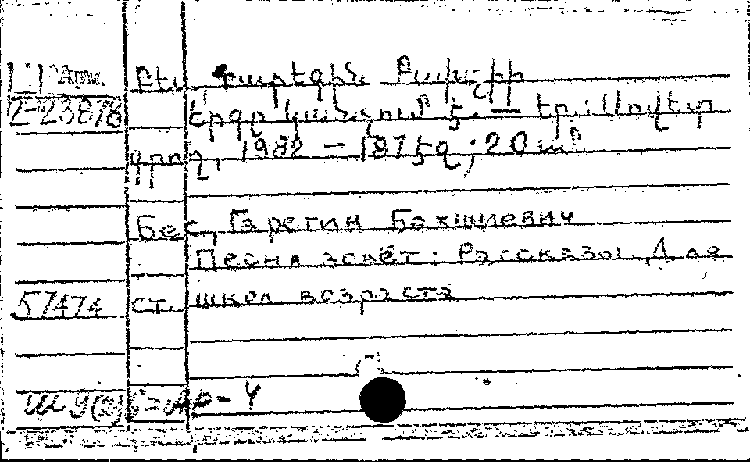 Բես, Գարեգին Բախշիի
2-23876 Երգը կանչում է. — Եր.: Սովետ.
գրող, 1982 — 187 էջ; 20 սմ
Бес, Гарегин Бахшиевич
Песня зовёт: Рассказы Для
57474 ст. школ возраста